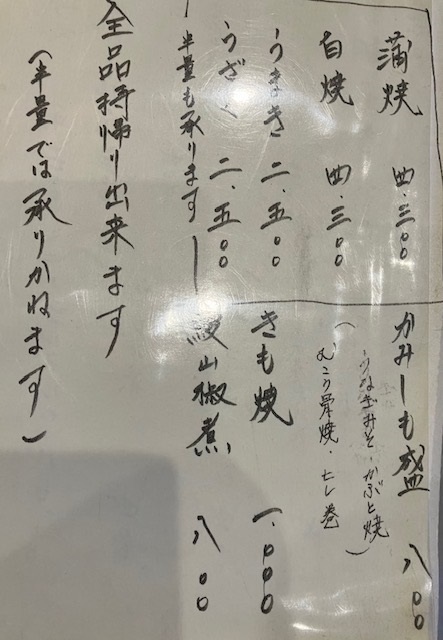 蒲焼 四.三〇〇
白焼 四.三〇〇
うまき 二.五〇〇
うざく 二.五〇〇
―半量も承ります―
かみしも盛 八〇〇
(うなぎみそ・かぶと焼
骨焼・ヒレ巻)
きも焼 一.〇〇〇
山椒煮 八〇〇
全品持帰り出来ます
(半量では承りかねます)